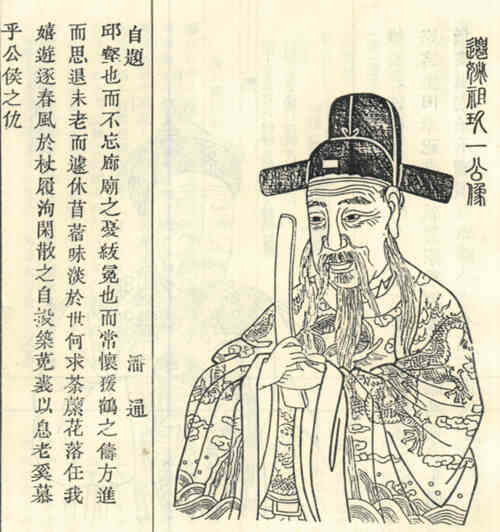 遷姚祖玖一公像
自題 潘通
邱壑也而不忘廊廟之憂紱冕也而常懷猨鶴之儔方進
而思退未老而遽休苜蓿味淡於世何求荼蘼花落任我
嬉遊逐春風於杖履洵閑散之自投築菟裘以息老奚慕
乎公侯之仇